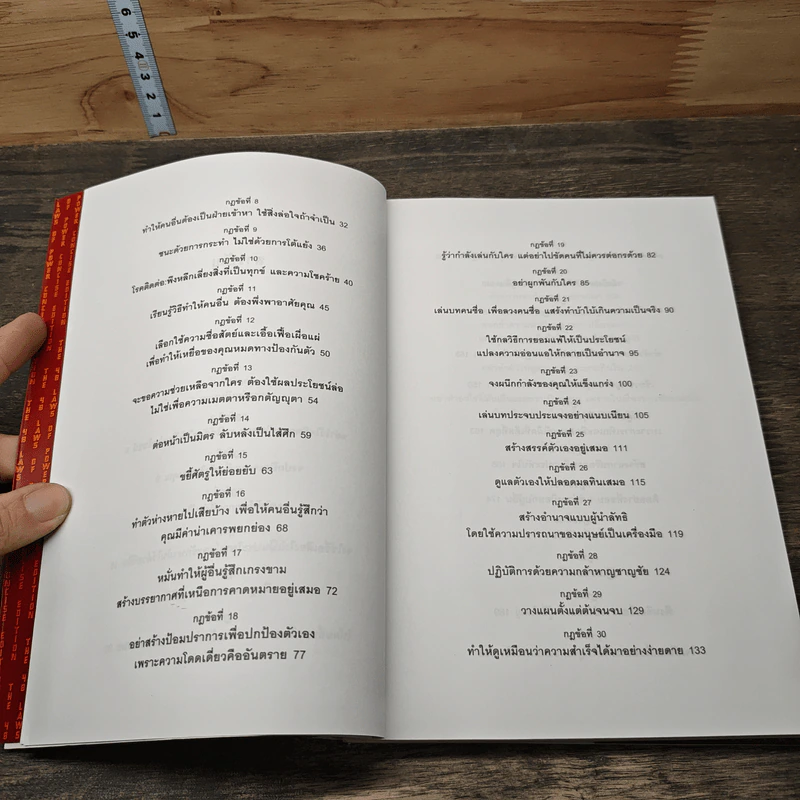 กฎข้อที่ 8
ทำให้คนอื่นต้องเป็นฝ่ายเข้าหา ใช้สิ่งล่อใจถ้าจำเป็น 32
กฎข้อที่ 9
ชนะด้วยการกระทำ ไม่ใช่ด้วยการโต้แย้ง 36
กฎข้อที่ 10
โรคติดต่อ: พึงหลีกเลี่ยงสิ่งที่เป็นทุกข์ และความโชคร้าย 40
กฎข้อที่ 11
เรียนรู้วิธีทำให้คนอื่น ต้องพึ่งพาอาศัยคุณ 45
กฎข้อที่ 12
เลือกใช้ความซื่อสัตย์และเอื้อเฟื้อเผื่อแผ่
เพื่อทำให้เหยื่อของคุณหมดทางป้องกันตัว 50
กฎข้อที่ 13
จะขอความช่วยเหลือจากใคร ต้องใช้ผลประโยชน์ล่อ
ไม่ใช่เพื่อความเมตตาหรือกตัญญุตา 54
กฎข้อที่ 14
ต่อหน้าเป็นมิตร ลับหลังเป็นไส้ศึก 59
กฎข้อที่ 15
ขยี้ศัตรูให้ย่อยยับ 63
กฎข้อที่ 16
ทำตัวห่างหายไปเสียบ้าง เพื่อให้คนอื่นรู้สึกว่า
คุณมีค่าน่าเคารพยกย่อง 68
กฎข้อที่ 17
หมั่นทำให้ผู้อื่นรู้สึกเกรงขาม
สร้างบรรยากาศที่เหนือการคาดหมายอยู่เสมอ 72
กฎข้อที่ 18
อย่าสร้างป้อมปราการเพื่อปกป้องตัวเอง
เพราะความโดดเดี่ยวคืออันตราย 77
กฎข้อที่ 19
รู้ว่ากำลังเล่นกับใคร แต่อย่าไปขัดคนที่ไม่ควรต่อกรด้วย 82
กฎข้อที่ 20
อย่าผูกพันกับใคร 85
กฎข้อที่ 21
เล่นบทคนซื่อ เพื่อลวงคนซื่อ แสร้งทำบ้าใบ้เกินความเป็นจริง 90
กฎข้อที่ 22
ใช้กลวิธีการยอมแพ้ให้เป็นประโยชน์
แปลงความอ่อนแอให้กลายเป็นอำนาจ 95
กฎข้อที่ 23
จงผนึกกำลังของคุณให้แข็งแกร่ง 100
กฎข้อที่ 24
เล่นบทประจบประแจงอย่างแนบเนียน 105
กฎข้อที่ 25
สร้างสรรค์ตัวเองอยู่เสมอ 111
กฎข้อที่ 26
ดูแลตัวเองให้ปลอดมลทินเสมอ 115
กฎข้อที่ 27
สร้างอำนาจแบบผู้นำลัทธิ
โดยใช้ความปรารถนาของมนุษย์เป็นเครื่องมือ 119
กฎข้อที่ 28
ปฏิบัติการด้วยความกล้าหาญชาญชัย 124
กฎข้อที่ 29
วางแผนตั้งแต่ต้นจนจบ 129
กฎข้อที่ 30
ทำให้ดูเหมือนว่าความสำเร็จได้มาอย่างง่ายดาย 133
6 5 4 3 2 1
THE 48 LAWS OF POWER CONCISE EDITION